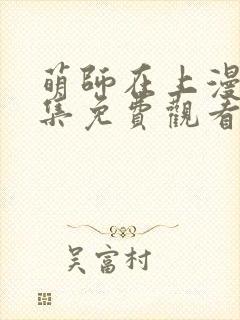 萌師在上漫
集免費觀看
吳富村